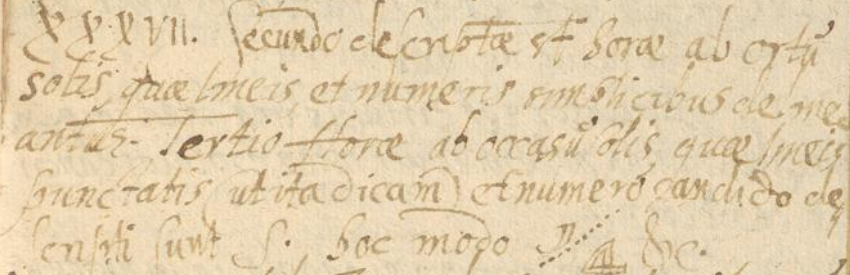 XXXVII. Secundo descriptæ st horæ ab ortu
solis, quæ lineis, et numeris simplicibus de me
antur. Tertio Horæ ab occasu solis, quæ lineis
punctatis (ut ita dicam) et numero candido de
scripti sunt S., hoc modo &c.